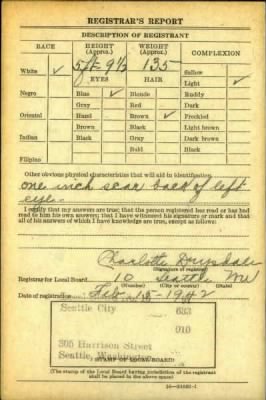 REGISTRAR'S REPORT
DESCRIPTION OF REGISTRANT
RACE HEIGHT (Approx.) WEIGHT (Approx.) COMPLEXION
White ✓ 5 ft 9 1/2 135 Sallow
EYES HAIR Light ✓
Negro Blue ✓ Blonde Ruddy
Gray Red Dark
Oriental Hazel Brown ✓ Freckled
Brown Black Light brown
Indian Black Gray Dark brown
Bald Black
Filipino
Other obvious physical characteristics that will aid in identification
one inch scar back of left
eye.
I certify that my answers are true; that the person registered has read or has had
read to him his own answers; that I have witnessed his signature or mark and that
all of his answers of which I have knowledge are true, except as follows:
Charlotte Drysdale
(Signature of registrar)
Registrar for Local Board 10 Seattle
(Number) (City or county) (State)
Date of registration Feb 15-1942
Seattle City 633
010
305 Harrison Street
Seattle, Washington
STAMP OF LOCAL BOARD
(The stamp of the Local Board having jurisdiction of the registrant
shall be placed in the above space.)